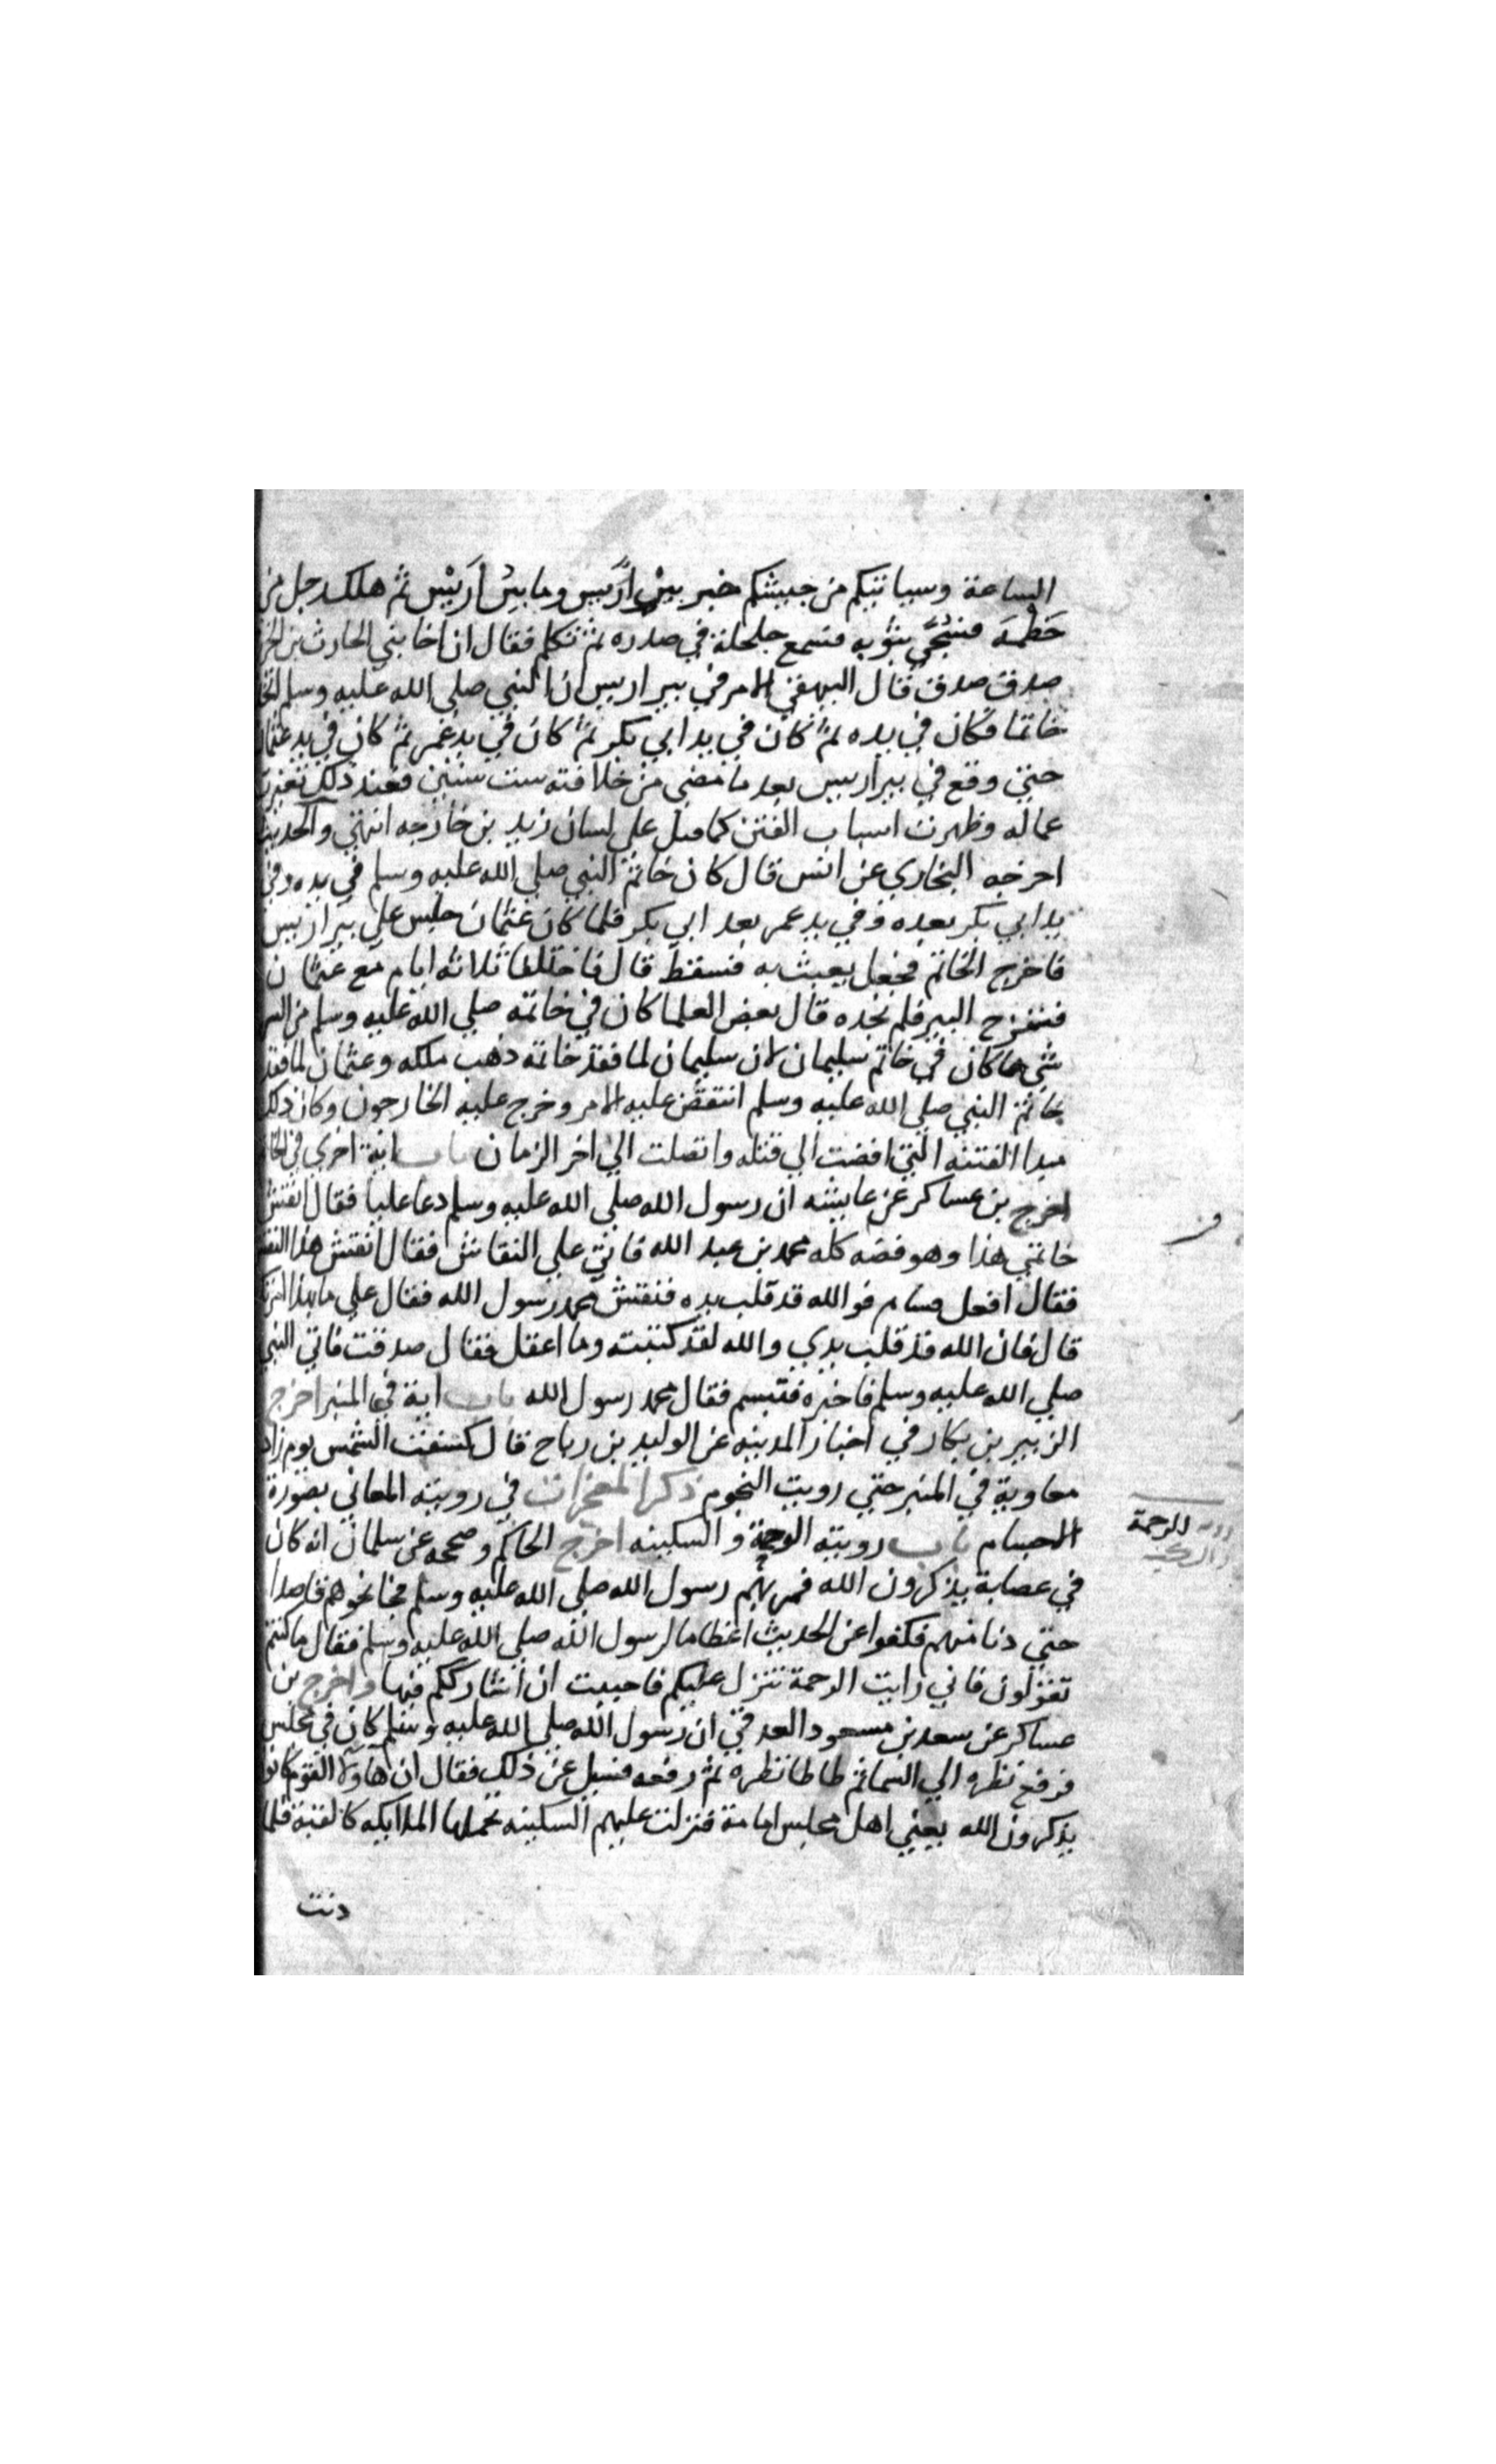 الساعة وسياتيكم من جيشكم خبر بير اريس وما بير اريس ثم هلك رجل من
خطمة فسجي بثوبه فسمع جلجلة في صدره ثم تكلم فقال ان اخا بني الحارث بن
صدق صدق قال البيهقي الامر في بير اريس ان النبي صلي الله عليه وسلم
خاتما فكان في يده ثم كان في يد ابي بكر ثم كان في يد عمر ثم كان في يد عثمان
حتي وقع في بير اريس بعد ما مضي من خلافته ست سنين فعند ذلك تغيرت
عماله وظهرت اسباب الفتن كما قيل علي لسان زيد بن خارجه انتهي والحديث
اخرجه البخاري عن انس قال كان خاتم النبي صلي الله عليه وسلم في يده وفي
يد ابي بكر بعده وفي يد عمر بعد ابي بكر فلما كان عثمان جلس علي بير اريس
فاخرج الخاتم فجعل يعبث به فسقط قال فاختلفنا ثلاثه ايام مع عثمان
فننزح البير فلم نجده قال بعض العلما كان في خاتمه صلي الله عليه وسلم من السر
شي مما كان في خاتم سليمان لان سليمان لما فقد خاتمه ذهب ملكه وعثمان لما فقد
خاتم النبي صلي الله عليه وسلم انتقض عليه الامر وخرج عليه الخارجون وكان ذلك
مبدا الفتنه التي افضت الي قتله واتصلت الي اخر الزمان باب اية اخري في
اخرج بن عساكر عن عايشه ان رسول الله صلي الله عليه وسلم دعا عليا فقال انقش
خاتمي هذا وهو فضه كله محمد بن عبد الله فاتي علي النقاش فقال انقش هذا
فقال افعل فوالله قد قلب يده فنقش محمد رسول الله فقال علي ما بهذا
قال فان الله قد قلب يدي والله لقد كتبته وما اعقل فقال صدقت فاتي النبي
صلي الله عليه وسلم فاخبره فتبسم فقال محمد رسول الله باب اية في المنبر اخرج
الزبير بن بكار في اخبار المدينه عن الوليد بن رباح قال كسفت الشمس يوم زاد
معاوية في المنبر حتي رويت النجوم ذكر المعجزات في رويته المعاني بصورة
الاجسام باب رويته الرحمة و السكينه اخرج الحاكم وصححه عن سلمان انه كان
في عصابة يذكرون الله فمر بهم رسول الله صلي الله عليه وسلم فجا نحوهم قاصدا
حتي دنا منهم فكفوا عن الحديث اعظاما لرسول الله صلي الله عليه وسلم فقال ما كنتم
تقولون فاني رايت الرحمة تنزل عليكم فاحببت ان اشارككم فيها واخرج بن
عساكر عن سعد بن مسعود ان رسول الله صلي الله عليه وسلم كان في مجلس
فرفع نظره الي السما ثم طاطا نظره ثم رفعه فسيل عن ذلك فقال ان هاولا القوم كانوا
يذكرون الله يعني اهل مجلس امامه فنزلت عليهم السكينه تحملها الملايكه كالقبة فلما
دنت
للرحمة